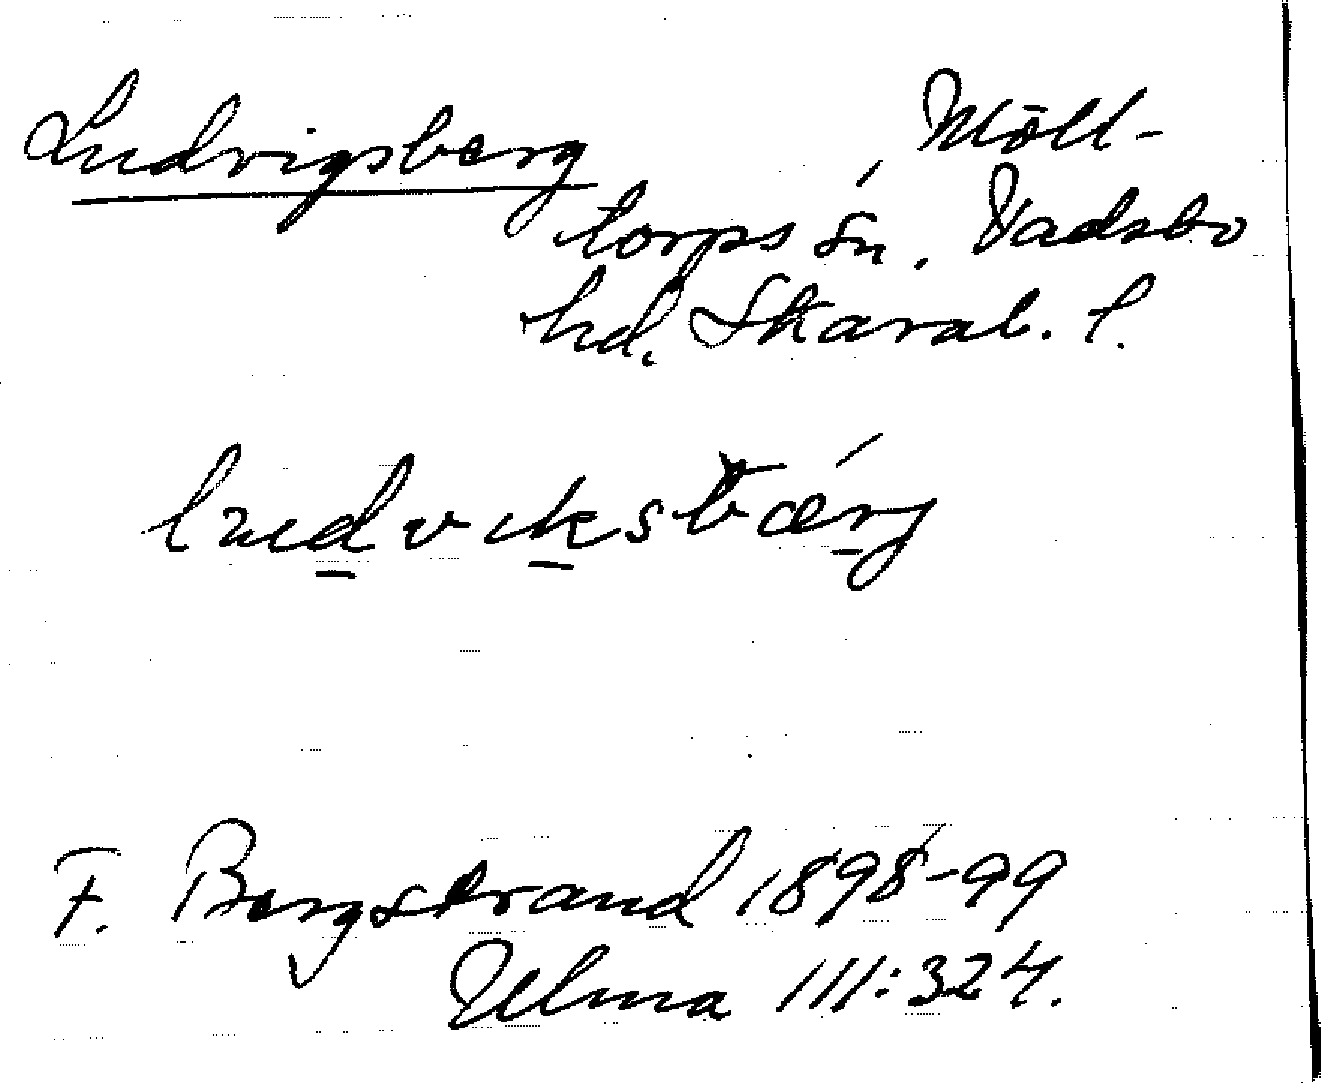 Ludvigsberg, Möll-
torps sn. Vadsbo
hd. Skarab. l.
F. Bergstrand 1898-99
Ulma 111:324.